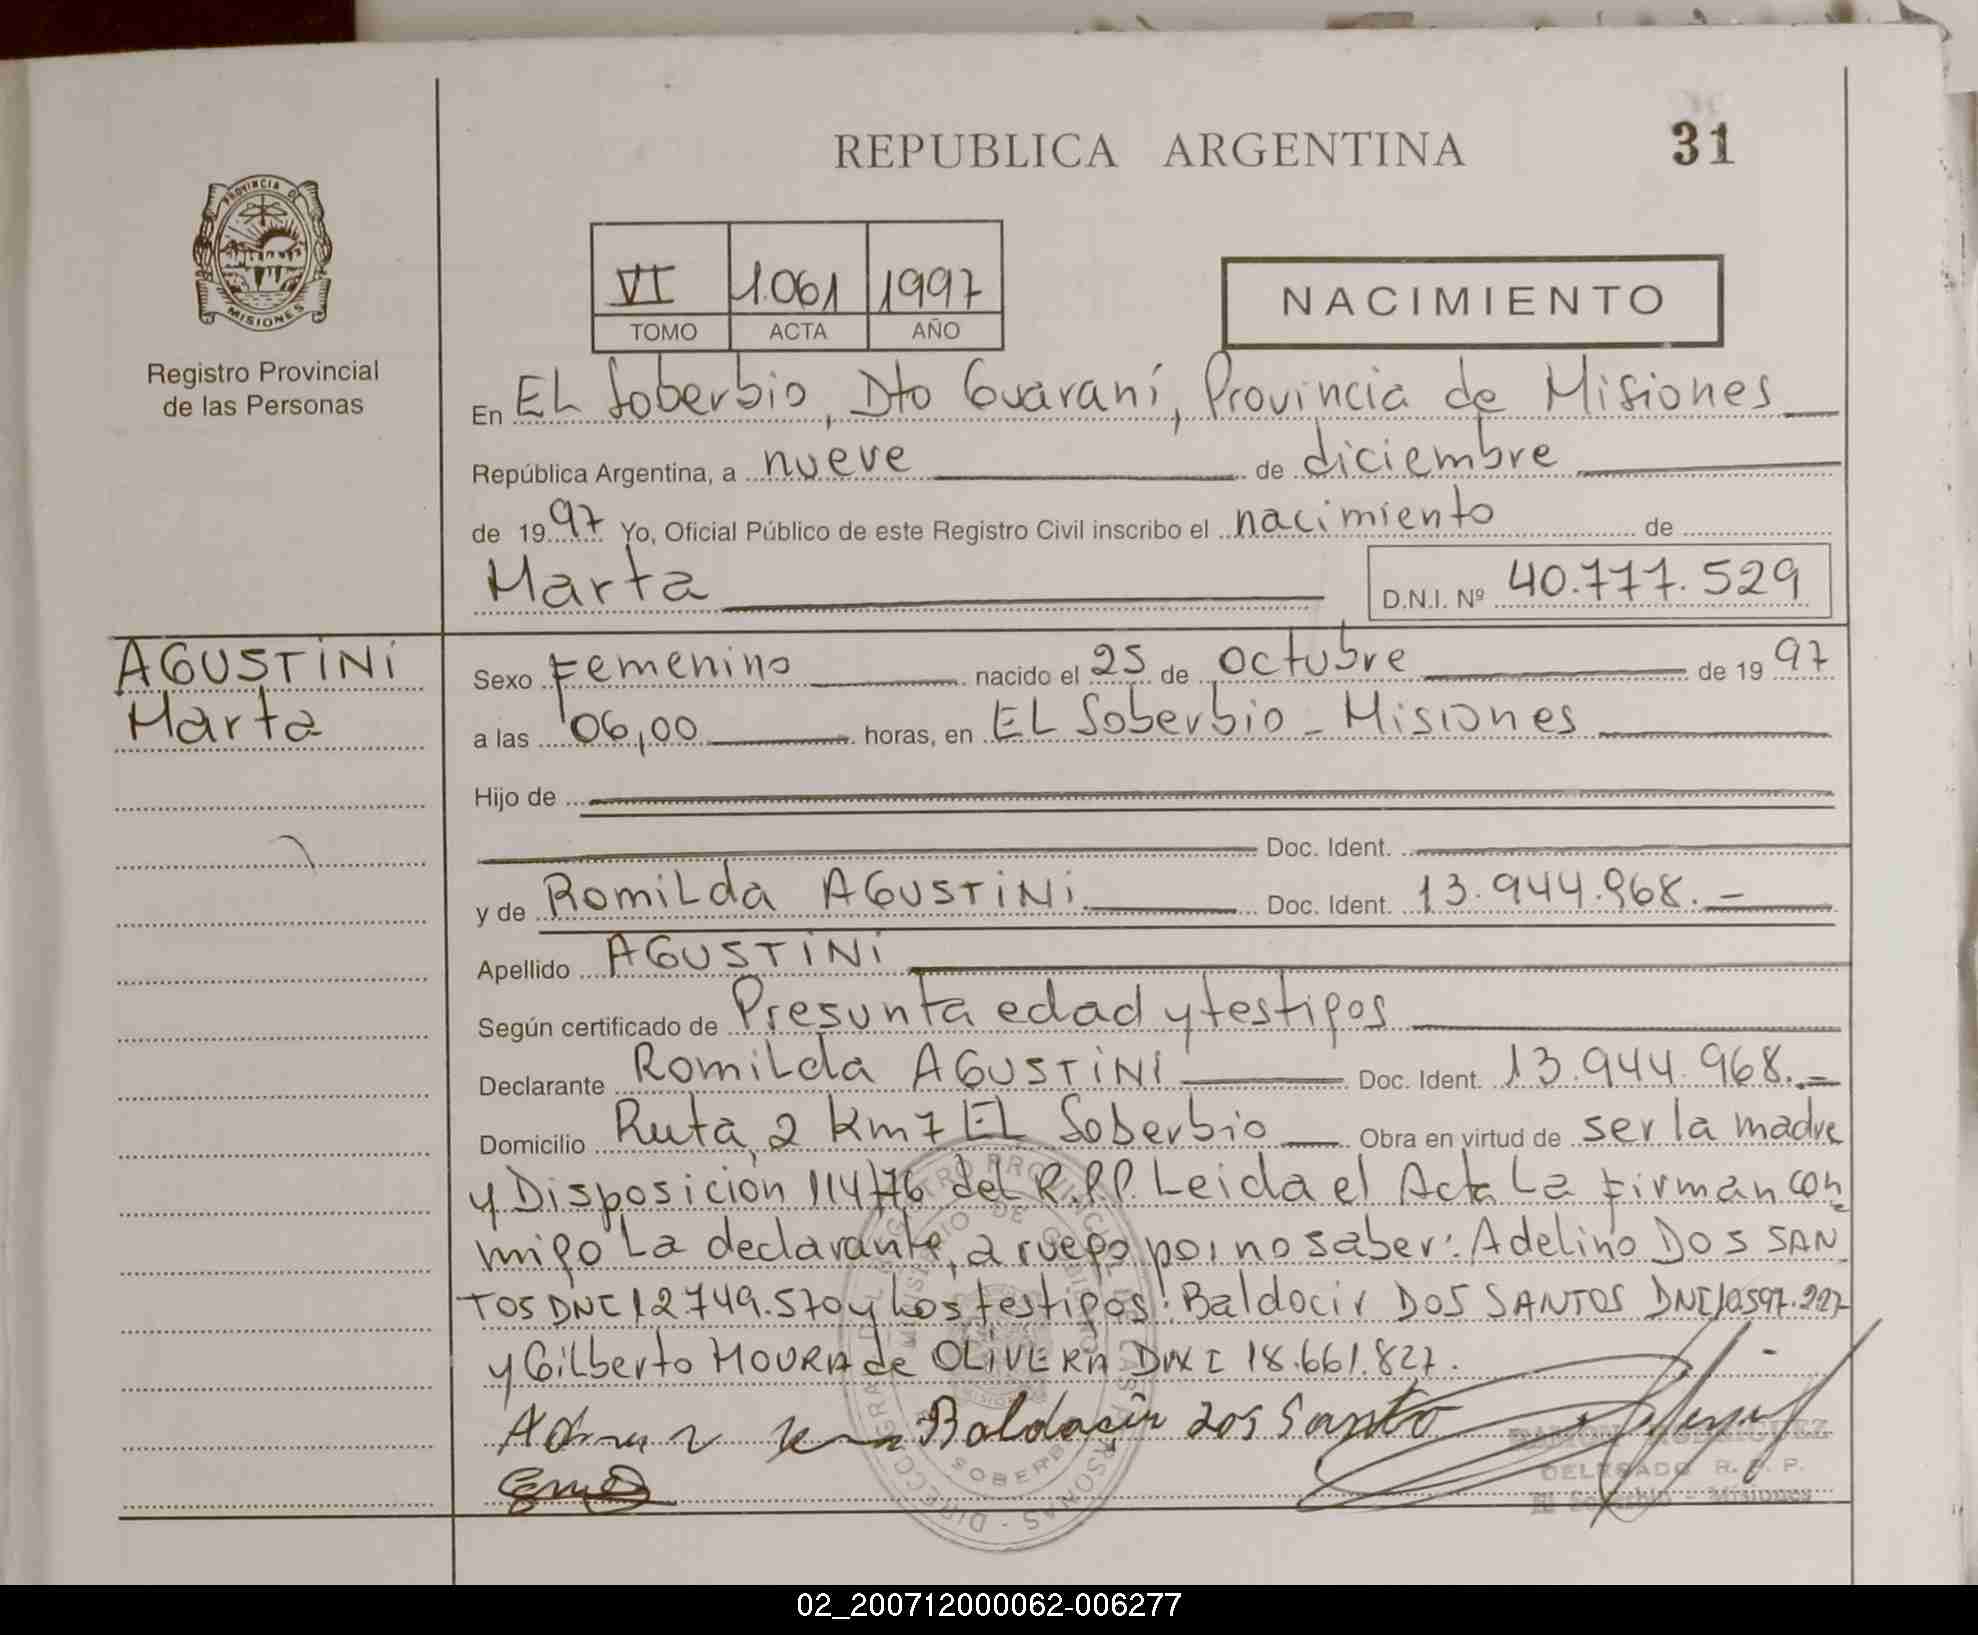 REPUBLICA ARGENTINA
31
PROVINCIA DE
MISIONES
Registro Provincial
de las Personas
VI 1.061 1997
TOMO ACTA AÑO
NACIMIENTO
En EL Soberbio, Dto Guaraní, Provincia de Misiones
República Argentina, a nueve de diciembre
de 1997 Yo, Oficial Público de este Registro Civil inscribo el nacimiento de
Marta D.N.I. Nº 40.777.529
AGUSTINI
Marta
Sexo Femenino nacido el 25 de octubre de 1997
a las 06,00 horas, en EL Soberbio - Misiones
Hijo de
Doc. Ident.
y de Romilda AGUSTINI Doc. Ident. 13.944.968.-
Apellido AGUSTINI
Según certificado de Presunta edad y testigos
Declarante Romilda AGUSTINI Doc. Ident. 13.944.968.-
Domicilio Ruta, 2 Km 7 EL Soberbio Obra en virtud de ser la madre
y Disposición 114/76 del R.P.P. Leida el Acta La firman con
migo La declarante, a ruego por no saber: Adelino DOS SAN
TOS DNI 12.749.570 y Los testigos: Baldocir DOS SANTOS DNI 10.597.227
y Gilberto MOURA de OLIVERA DNI 18.661.827.
Baldocir dos Santo
DELEGADO R. P. P.
El Soberbio - Misiones
02_200712000062-006277